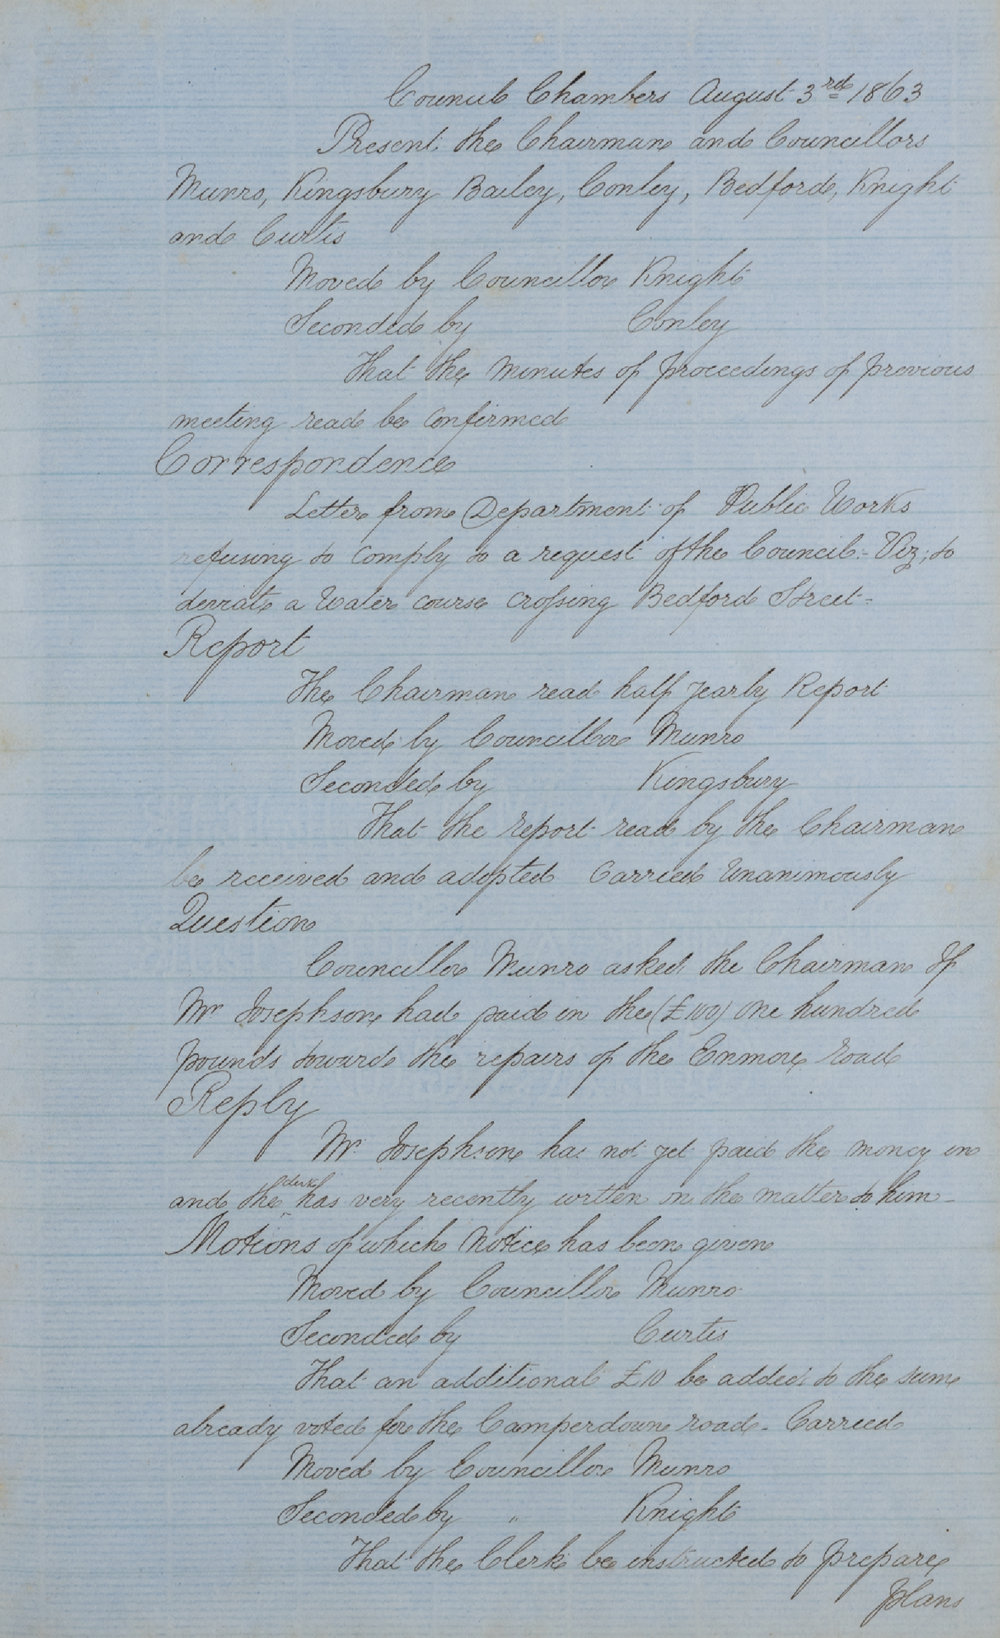 Council Chambers August 3rd 1863
Present the Chairman and Councillors
Munro, Kingsbury Bailey, Conley, Bedford, Knight
and Curtis
Moved by Councillor Knight
Seconded by Conley
That the minutes of proceedings of previous
meeting read be confirmed
Correspondence
Letter from Department of Public Works
refusing to comply to a request of the Council - Viz, to
deviate a Water course crossing Bedford Street -
Report
The Chairman read half yearly Report
Moved by Councillor Munro
Seconded by Kingsbury
That the report read by the Chairman
be received and adopted Carried Unanimously
Question
Councillor Munro asked the Chairman If
Mr Josephson had paid in the (£100) One hundred
pounds towards the repairs of the Enmore road
Reply
Mr Josephson has not yet paid the money in
and the clerk has very recently written on the matter to him -
Motions of which Notice has been given
Moved by Councillor Munro
Seconded by Curtis
That an additional £10 be added to the sum
already voted for the Camperdown road - Carried
Moved by Councillor Munro
Seconded by " Knight
That the Clerk be instructed to prepare
plans